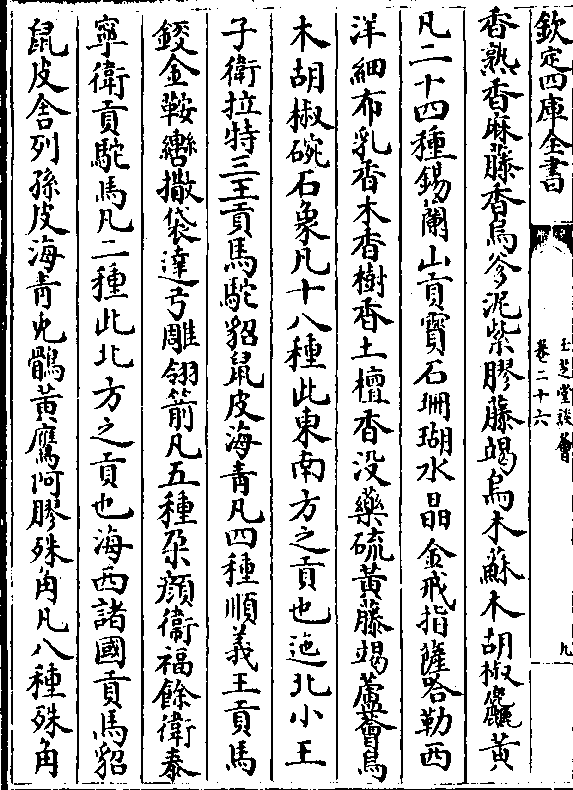 欽定四庫全書
玉芝堂談薈
卷二十六
九
香熟香麻藤香烏爹泥紫膠藤竭烏木蘇木胡椒儷黃
凡二十四種錫蘭山貢寶石珊瑚水晶金戒指薩哈勒西
洋細布乳香木香樹香土檀香没藥硫黃藤竭蘆薈烏
木胡椒碗石象凡十八種此東南方之貢也迤北小王
子衛拉特三王貢馬駝貂鼠皮海青凡四種順義王貢馬
鋄金鞍轡撒袋達弓雕翎箭凡五種朶顔衛福餘衛泰
寧衛貢駝馬凡二種此北方之貢也海西諸國貢馬貂
鼠皮舍列孫皮海青兔鶻黃鷹阿膠殊角凡八種殊角